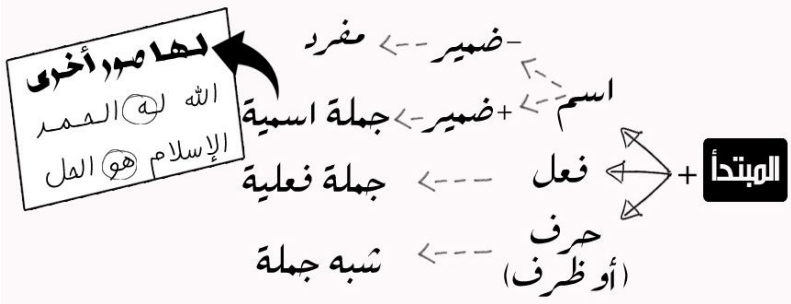 المبتدأ +
اسم
-ضمير --> مفرد
+ضمير --> جملة اسمية
فعل --> جملة فعلية
حرف
(أو ظرف) --> شبه جملة
لها صور أخرى
الله له الحمد
الإسلام هو الحل